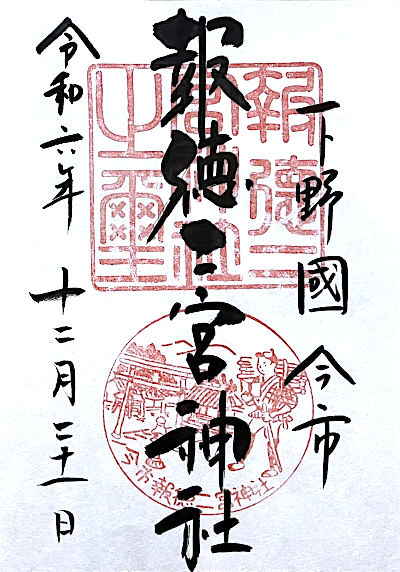 下野國 今市
報徳二宮神社
令和六年 十二月二十一日
報徳二宮神社之璽
今市報徳二宮神社